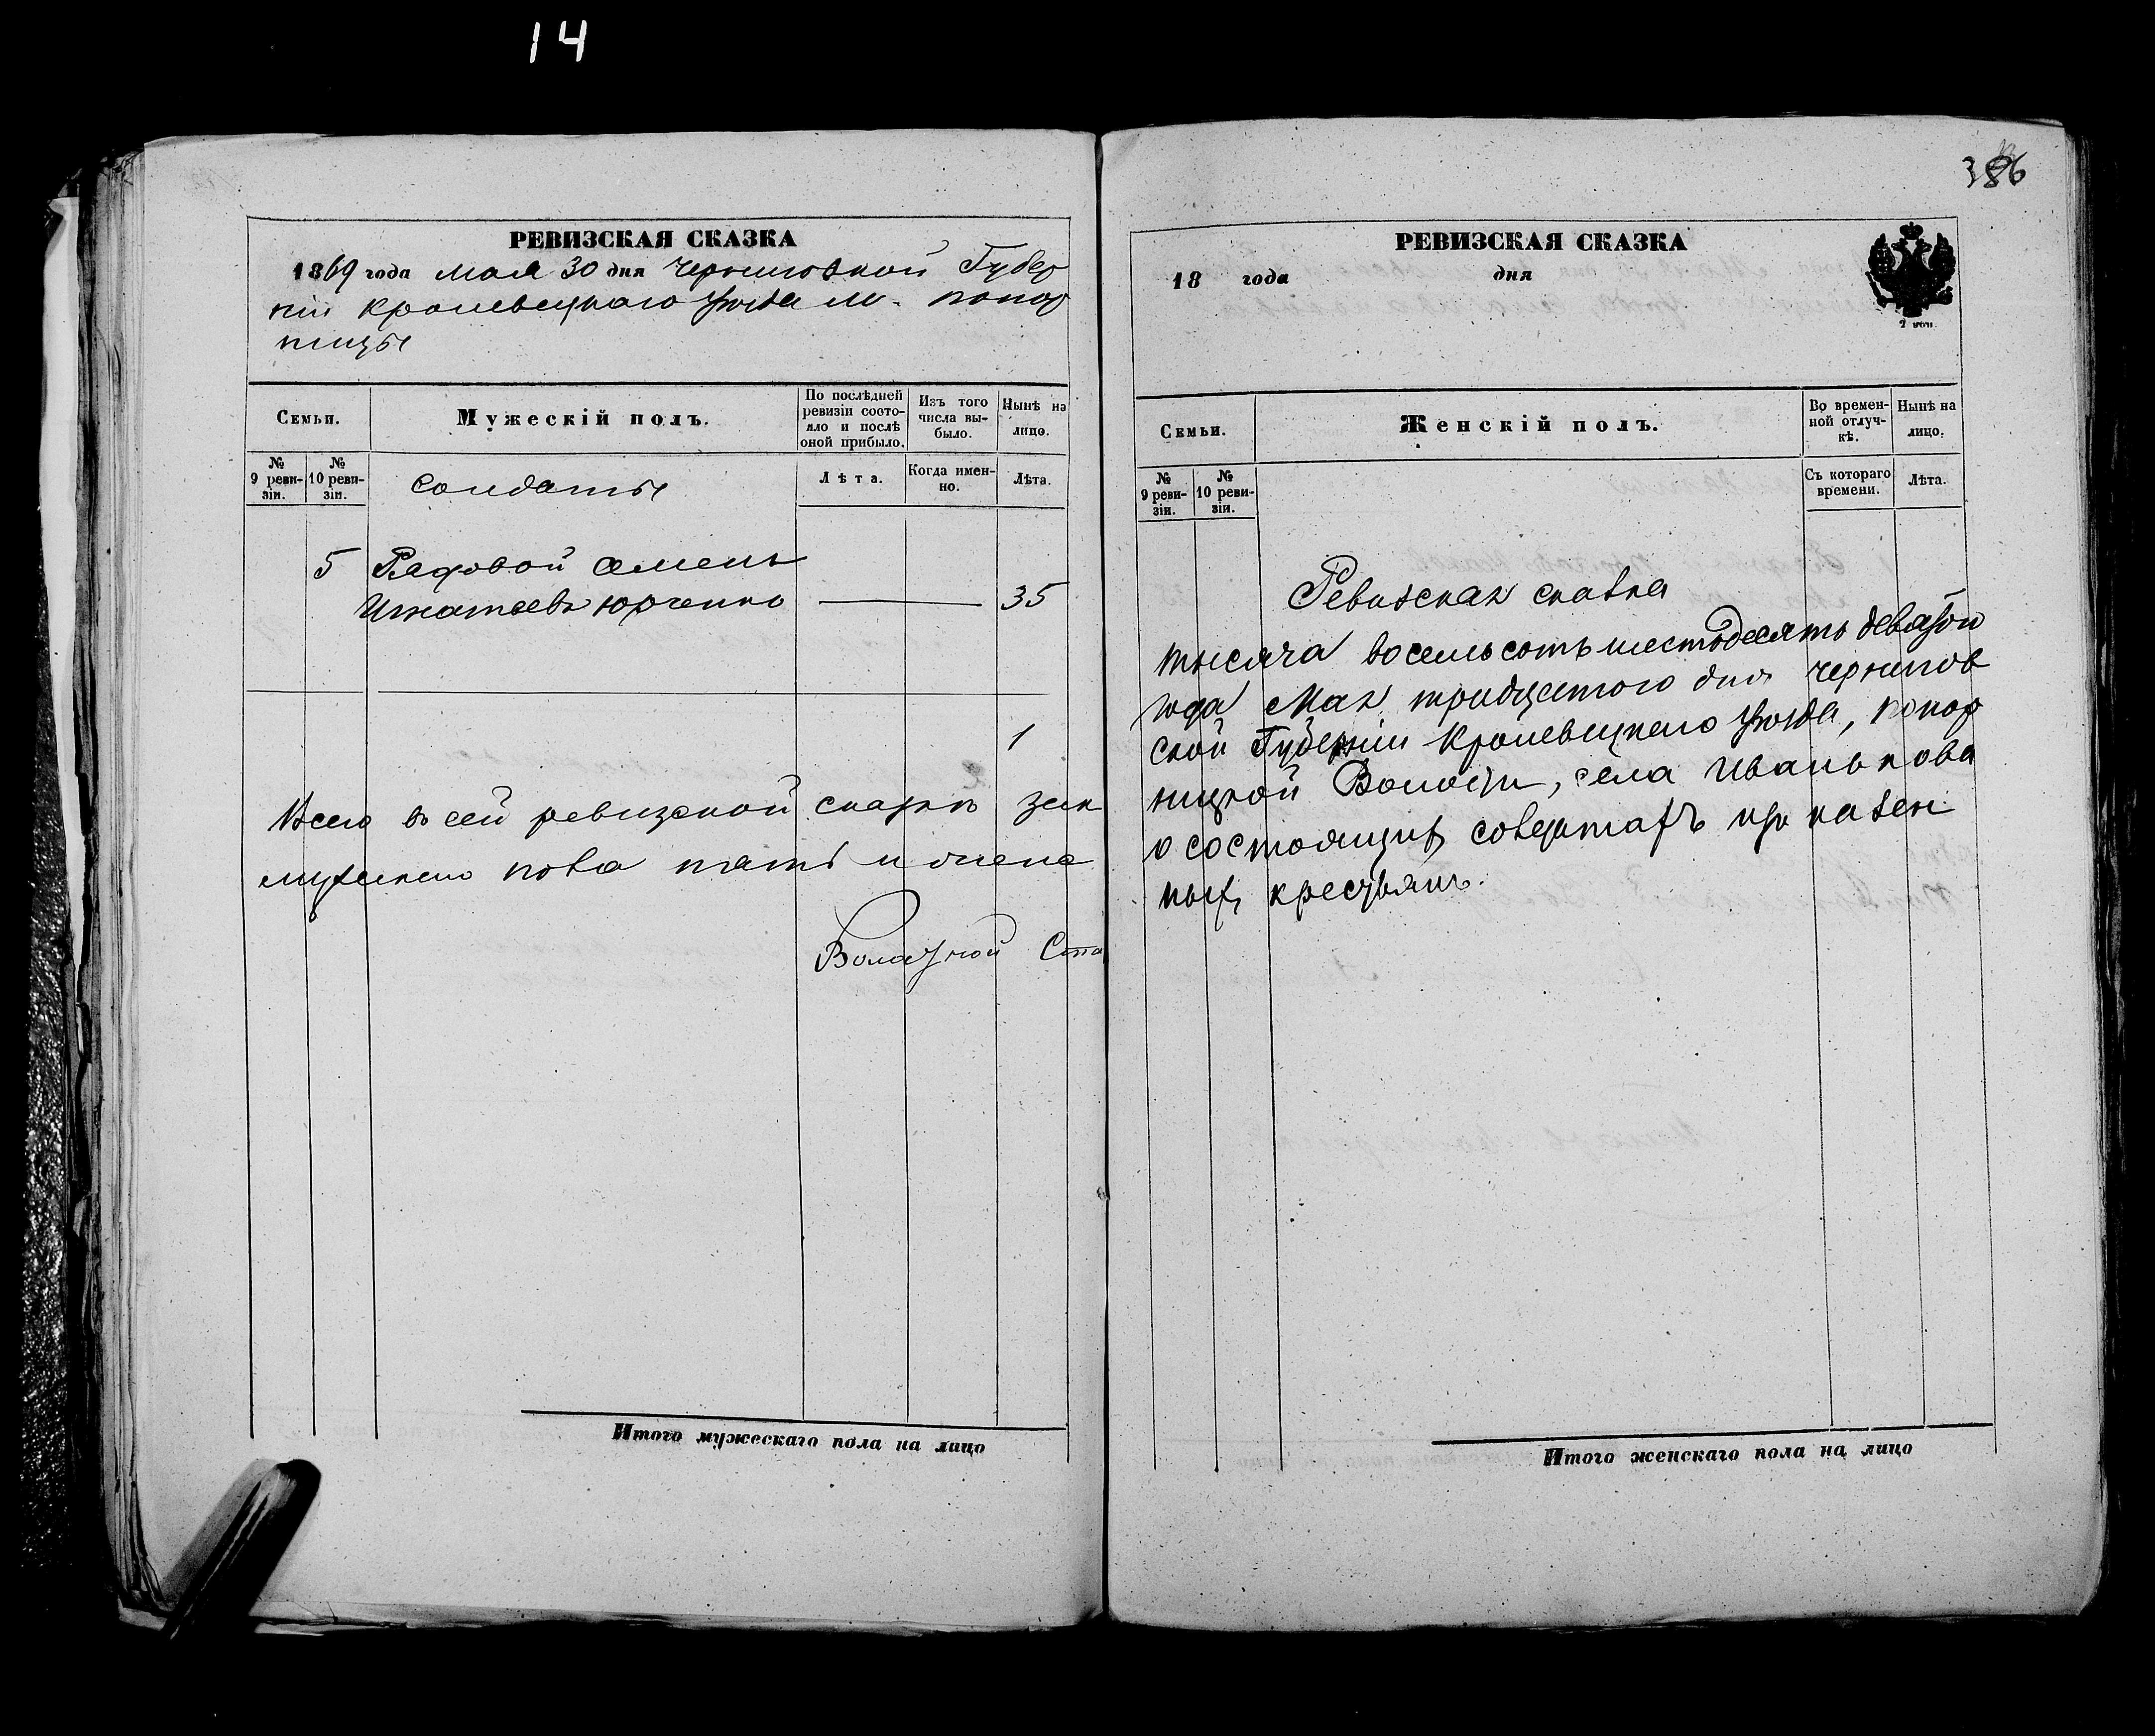 14
386
РЕВИЗСКАЯ СКАЗКА
1869 года мая 30 дня Черниговской Губер
ніи Кролевецкаго уѣзда м. Попор
ницы
Семьи.
Мужескій полъ.
По послѣдней ревизіи состояло и послѣ оной прибыло.
Изъ того числа выбыло.
Нынѣ на лицо.
№ 9 ревизіи.
№ 10 ревизіи.
Солдаты
Лѣта.
Когда именно.
Лѣта.
5 Рядовой Семенъ
Игнатьевъ Юрченко 35
1
Всего в сей ревизской сказкѣ
мужеска пола
Волостной Ста
РЕВИЗСКАЯ СКАЗКА
18 года дня
2 коп.
Семьи.
Женскій полъ.
Во временной отлучкѣ.
Нынѣ на лицо.
№ 9 ревизіи.
№ 10 ревизіи.
Съ котораго времени.
Лѣта.
Ревизская сказка
тысяча восемьсотъ шестьдесятъ девятого
года Мая тридцатого дня Чернигов
ской Губерніи Кролевецкаго уѣзда, Попор
ницкой Волости, села Иванькова
о состоящихъ солдатахъ изъ казен
ныхъ крестьянъ.
Итого мужескаго пола на лицо
Итого женскаго пола на лицо